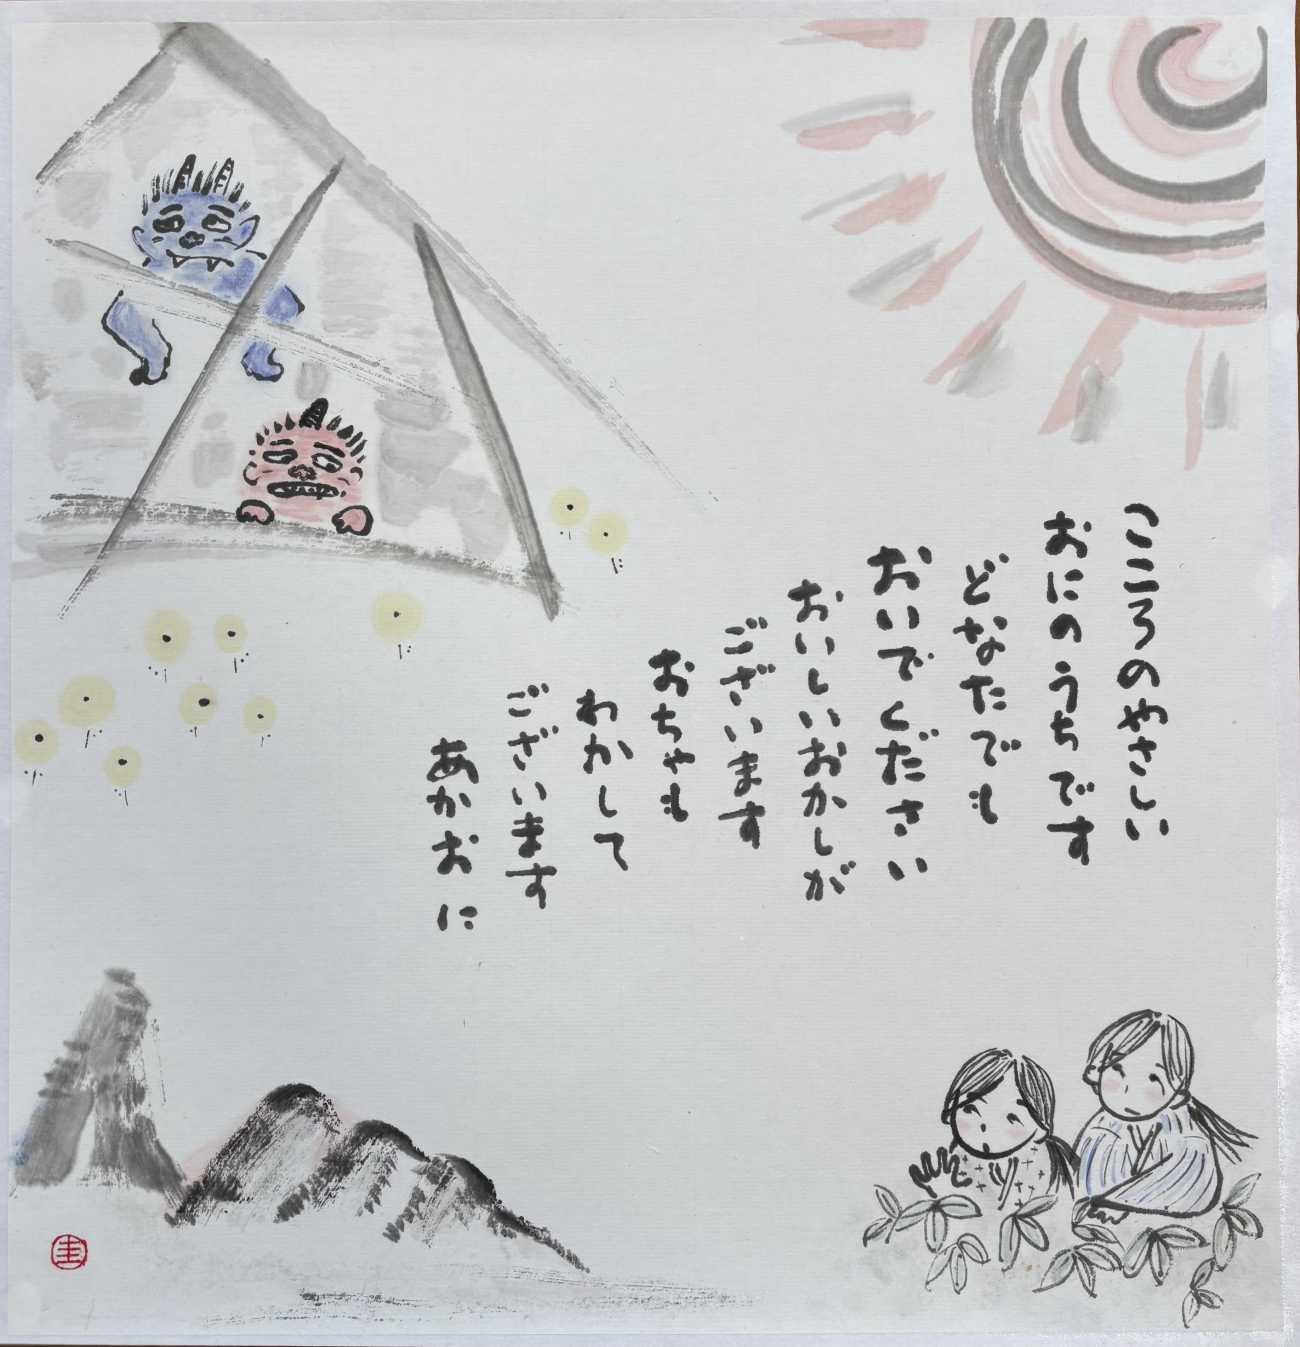 こころのやさしい
おにのうちです
どなたでも
おいでください
おいしいおかしが
ございます
おちゃも
わかして
ございます
あかおに
圭